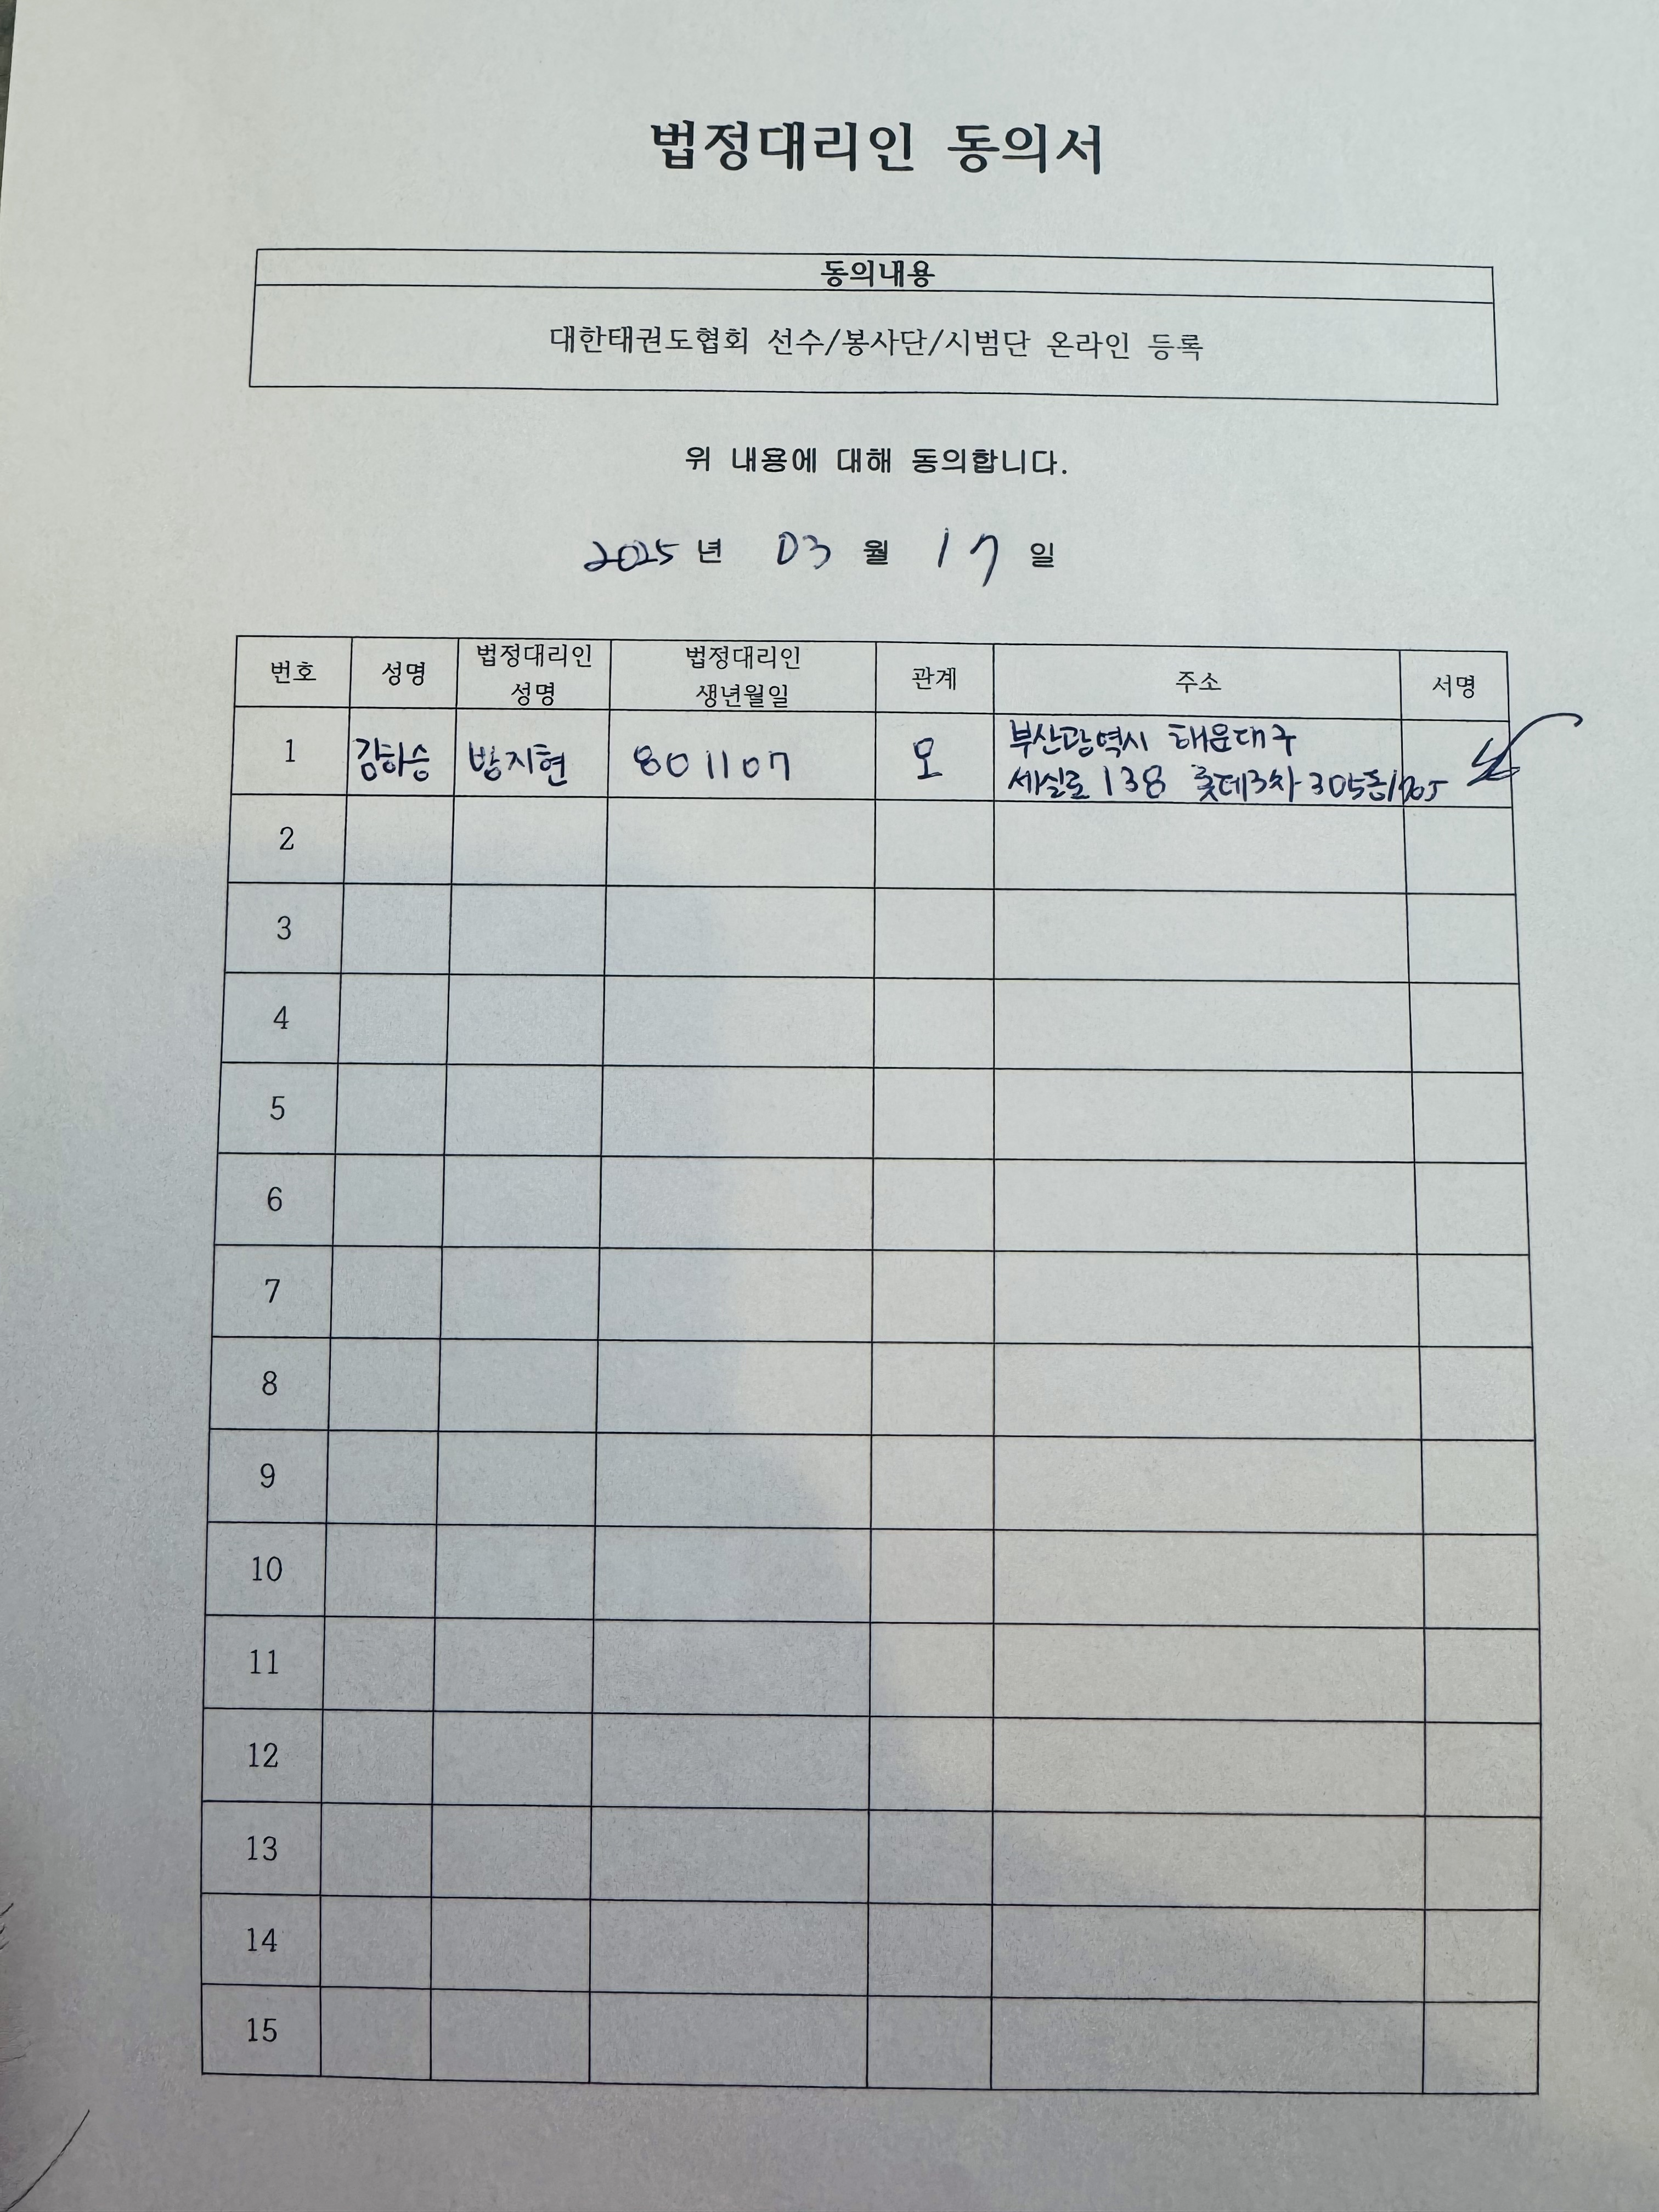 법정대리인 동의서
동의내용
대한태권도협회 선수/봉사단/시범단 온라인 등록
위 내용에 대해 동의합니다.
2025 년 03 월 17 일
번호 성명 법정대리인 성명 법정대리인 생년월일 관계 주소 서명
1 김하승 방지현 801107 모 부산광역시 해운대구
세실로 138 롯데3차 305동
2
3
4
5
6
7
8
9
10
11
12
13
14
15